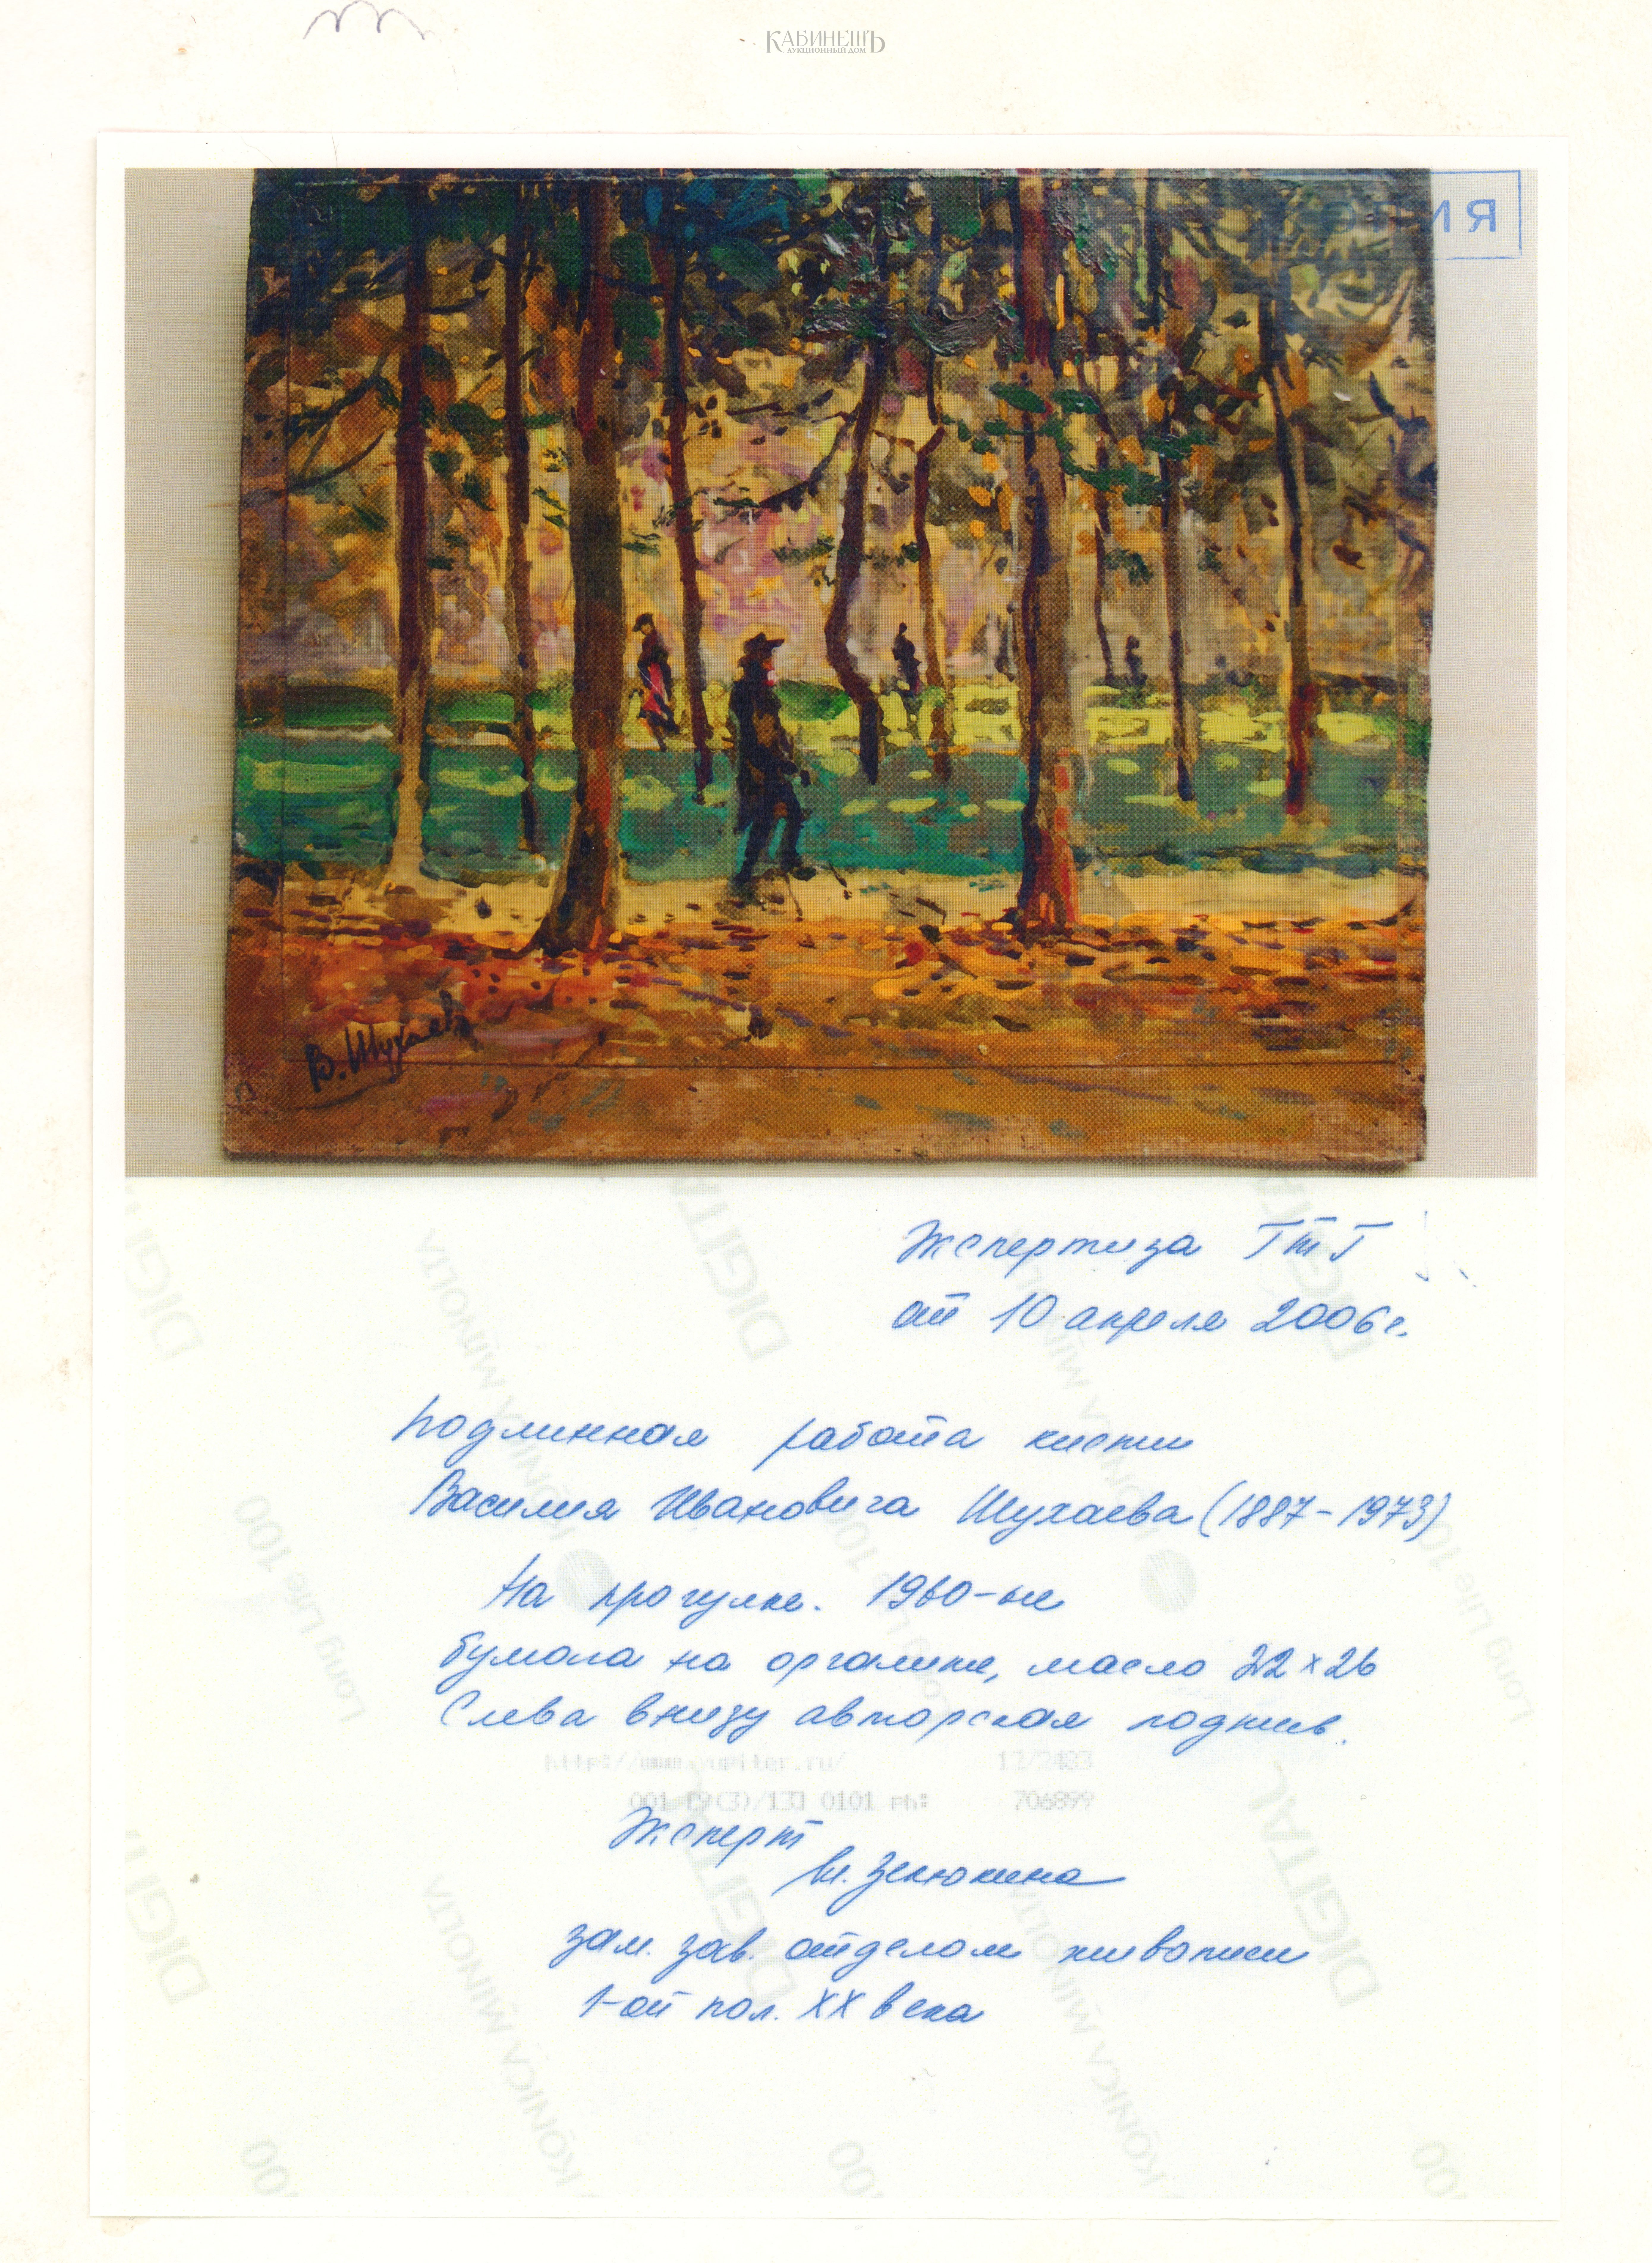 КАБИНЕТЪ
АУКЦИОННЫЙ ДОМ
КОПИЯ
В. Шухаев
Экспертиза ГТГ
от 10 апреля 2006 г.
Подлинная работа кисти
Василия Ивановича Шухаева (1887-1973)
На прогулке. 1960-ые
бумага на оргалите, масло 22 x 26
Слева внизу авторская подпись.
http://www.yupiter.ru/ 12/2483
001 [9(3)/13] 0101 Ph: 706899
Эксперт
зам. зав. отделом живописи
1-ой пол. XX века
DIGITAL
KONICA MINOLTA
Long Life 100